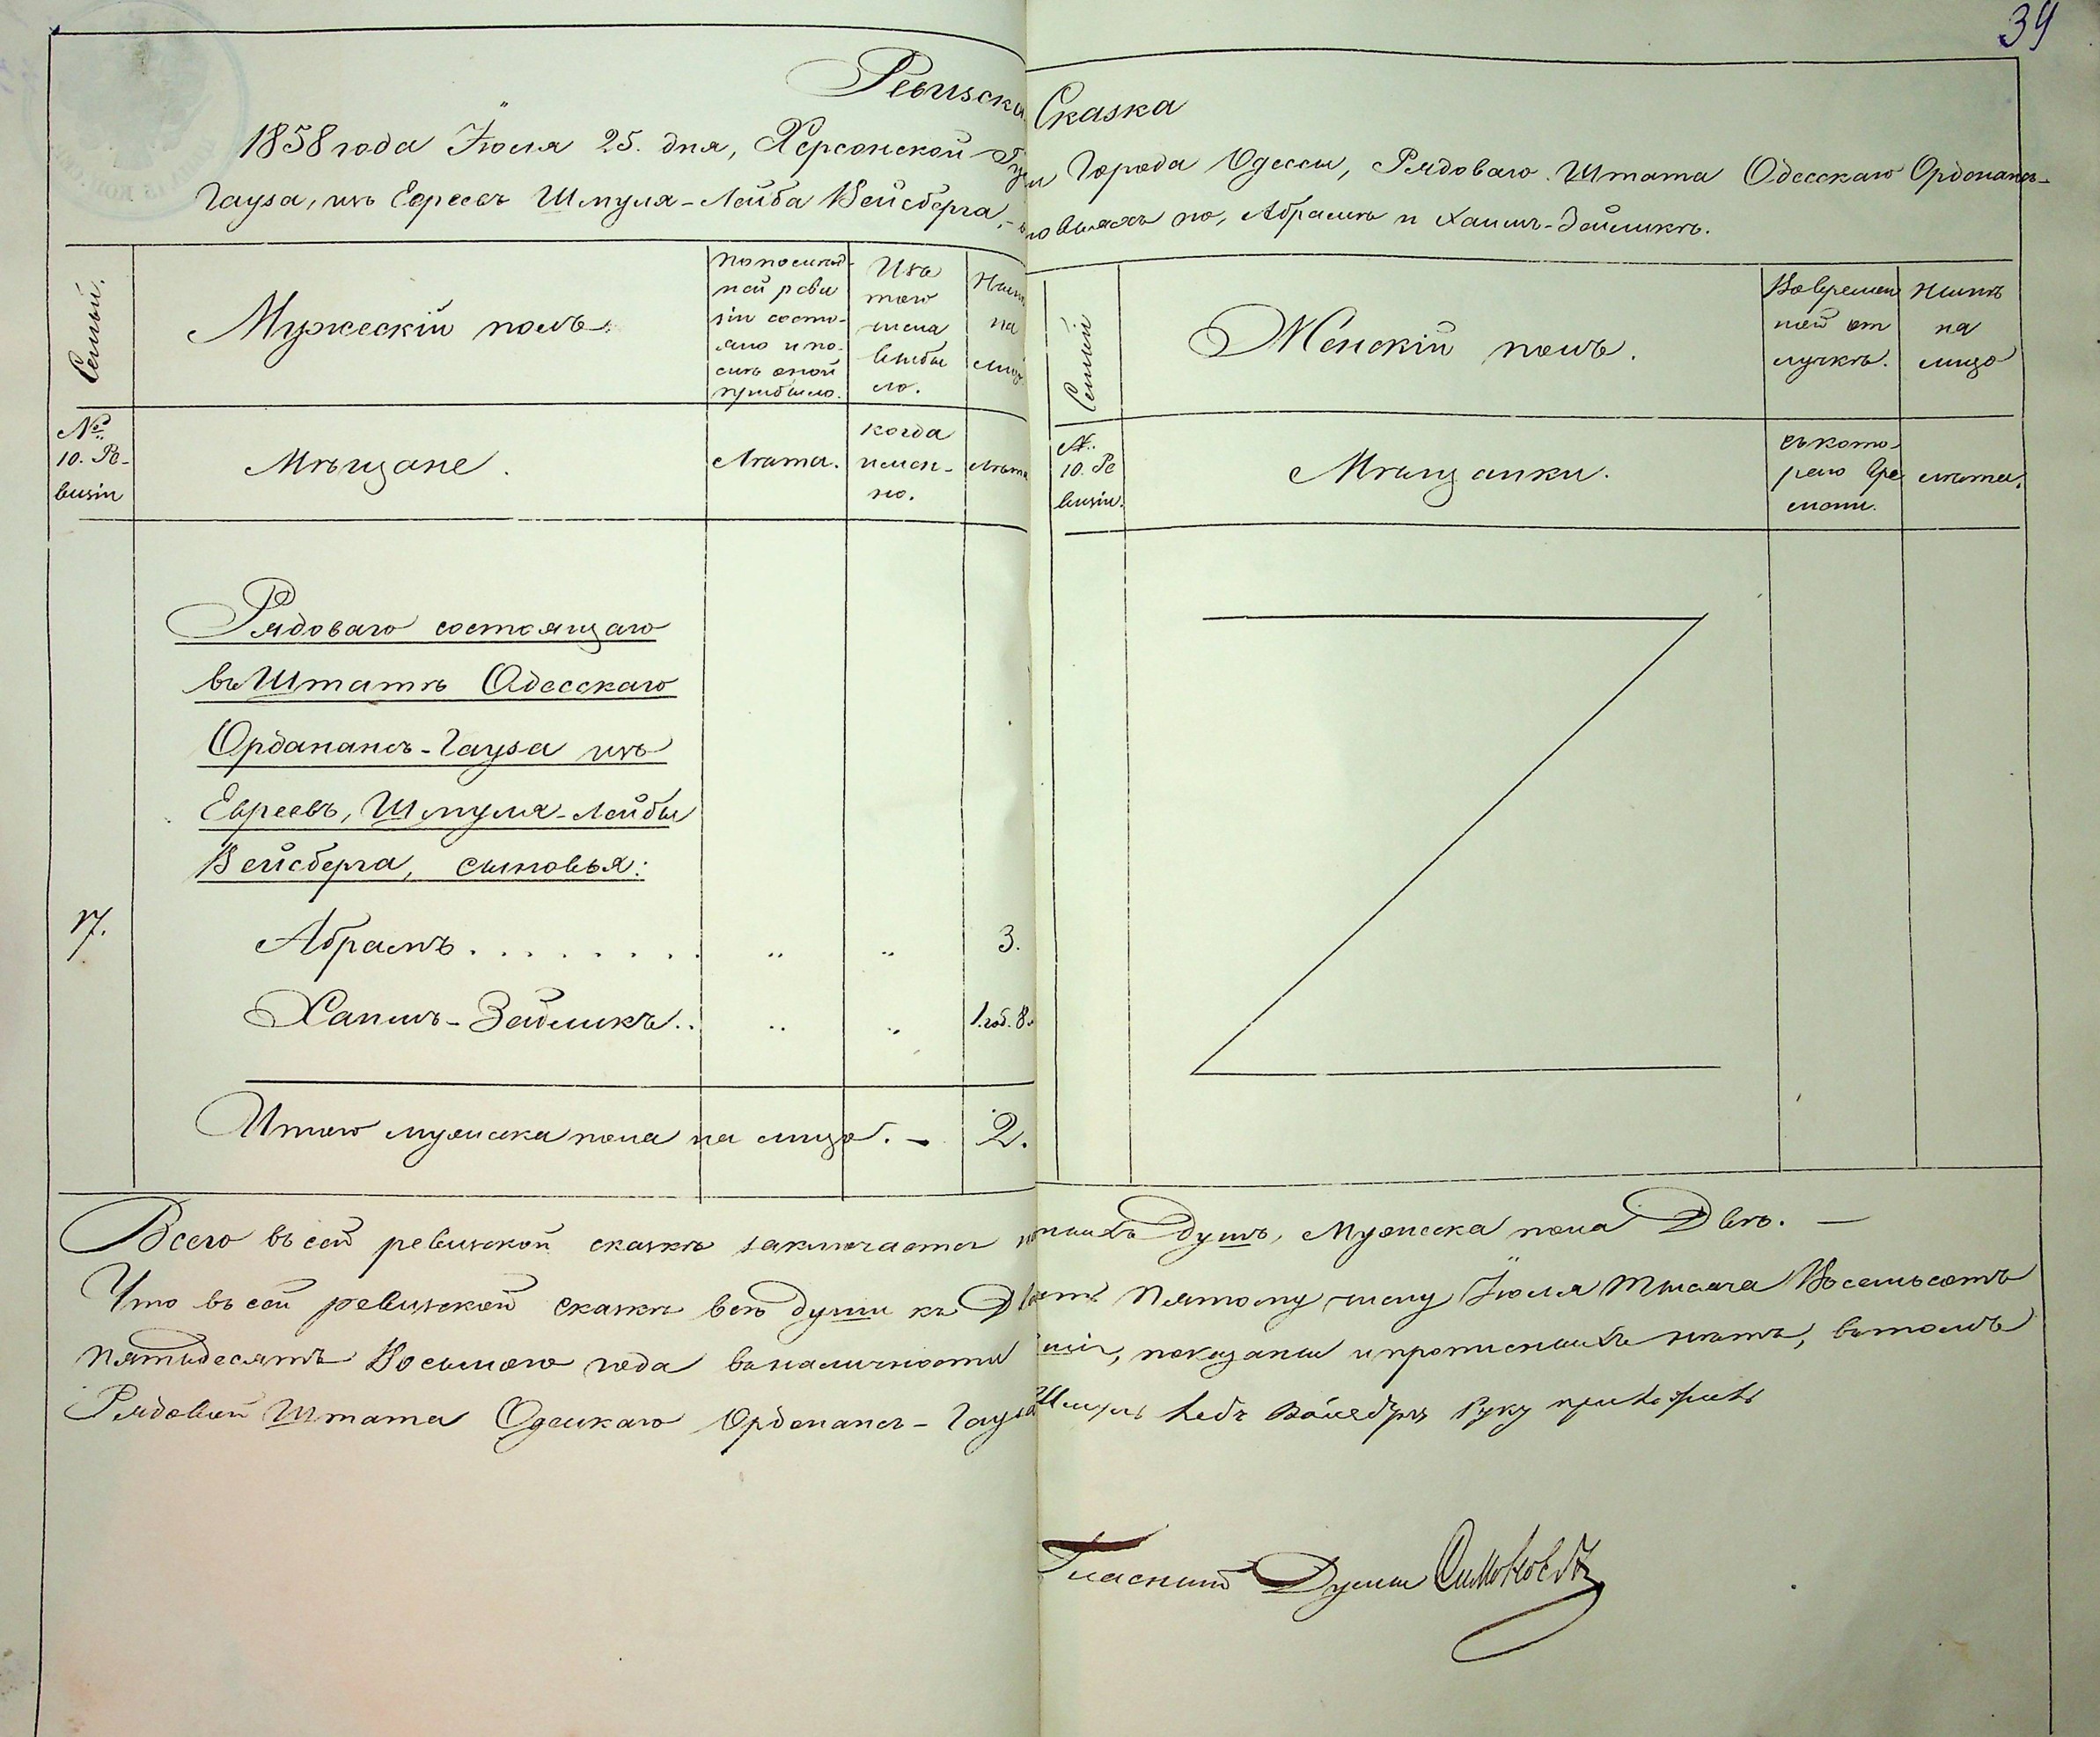 39
Ревизска Сказка
1858 года Іюля 25. дня, Херсонской Гу и Города Одессы, Рядоваго Штата Одесскаго Ордонансъ-
Гауза, изъ Евреевъ Шмуля-Лейба Вейсберга, о сыновьяхъ его, Абрамѣ и Хаимъ-Зейликѣ.
Семьи.
Мужескій полъ.
По послѣд-
ней реви
зіи состо-
яло и по-
слѣ оной
прибыло.
Изъ
того
числа
выбы
ло.
Нынѣ
на
лицо
№
10. Ре-
визіи
Мѣщане.
Лѣта.
когда
имен-
но.
Лѣта
Рядоваго состоящаго
въ Штатѣ Одесскаго
Орданансъ-Гауза изъ
Евреевъ, Шмуля-Лейбы
Вейсберга, сыновья:
17.
Абрамъ . . . . . . . . „ „ 3.
Хаимъ-Зейликъ . . „ „ 1. год. 8.
Итого мужеска пола на лицо. – 2.
Семьи
Женскій полъ.
Во времен
ной от
лучкѣ.
Нынѣ
на
лицо
№.
10. Ре
визіи.
Мѣщанки.
съ кото-
раго вре
мени.
лѣта.
Всего въ сей ревизской сказкѣ заключается наличныхъ душъ, Мужеска пола Двѣ. —
Что въ сей ревизской сказкѣ всѣ души къ Двадцать Пятому числу Іюля Тысяча Восемьсотъ
Пятьдесятъ Восьмого года въ наличности бывшія, показаны и прописныхъ нѣтъ, въ томъ
Рядовой Штата Одескаго Ордонансъ-Гауза Шмуль Лебъ Вайсбергъ Руку приложилъ
Гласный Думы Симоновъ